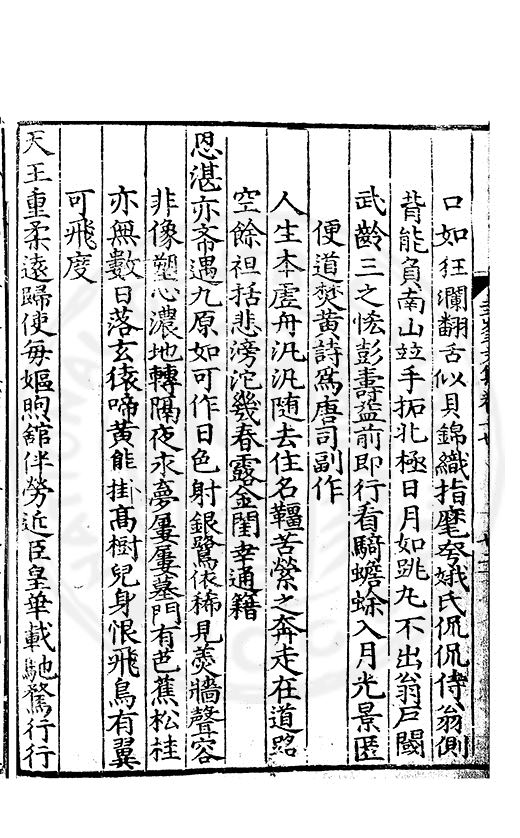 口如狂瀾翻舌似貝錦織指麾夸娥氏侃侃侍翁側
背能負南山竝手拓北極日月如跳丸不出翁戶閾
武齡三之恡彭壽益前卽行看騎蟾蜍入月光景匿
便道焚黃詩爲唐司副作
人生本虛舟汎汎随去住名韁苦縈之奔走在道路
空餘袒括悲滂沱幾春露金閨幸通籍
恩湛亦斎遇九原如可作日色射銀鷺依稀見羹牆聲容
非像塑心濃地轉隔夜永夢屢屢墓門有芭蕉松桂
亦無數日落玄猿啼黃能掛高樹兒身恨飛鳥有翼
可飛度
天王重柔遠歸使每嫗煦舘伴勞近臣皇華載馳騖行行